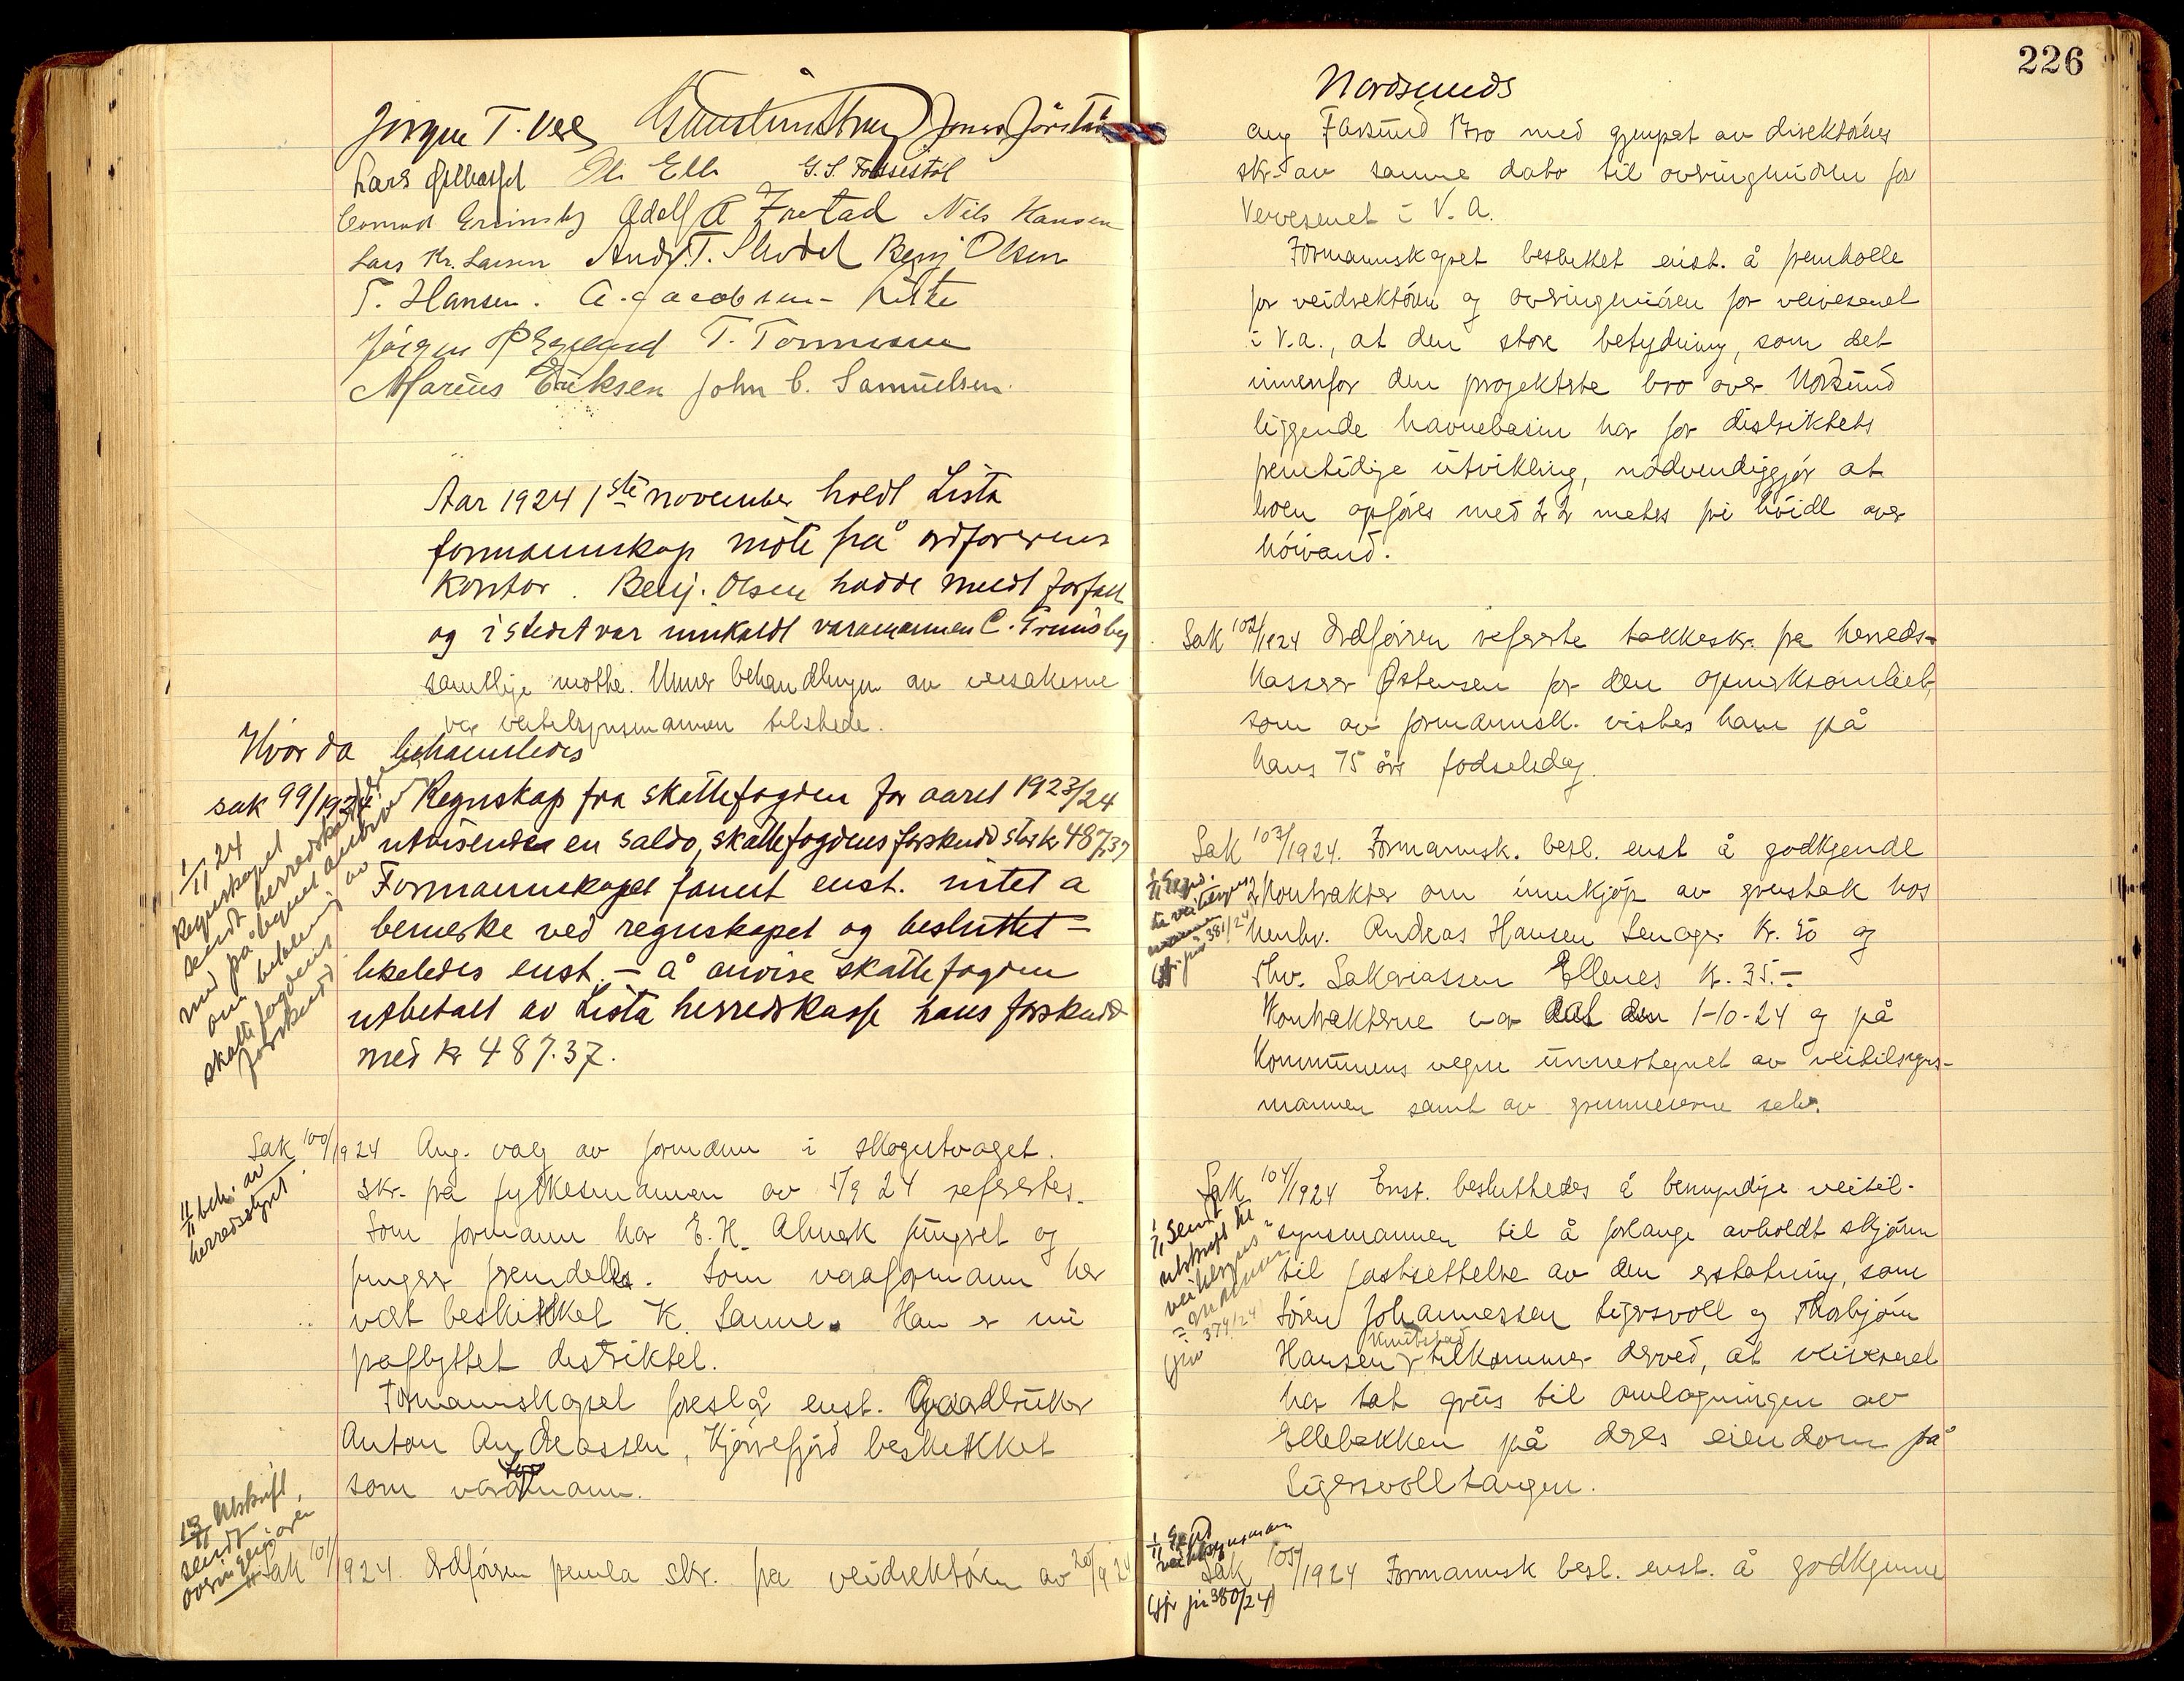 Jørgen T. Vere Jonas Jørstad
Lars Ellefsen Eli Elle G. S. Fossestøl
Conrad Grimsby Adolf A Frestad Nils Hansen
Lars Kr. Larsen Andr. T. Skodel Benj Olsen
T. Hansen. A. Jacobsen
Jørgen P T. Tønnesen
Marius Eriksen John C. Samuelsen.
Aar 1924 1ste november holdt Lista
formannskap møte på ordførerens
kontor. Benj. Olsen hadde meldt forfall
og istedet var innkaldt varamannen C. Grimsby
samtlige møtte. Unner behandlingen av veisakerne
var veitilsynsmannen tilstede.
Hvor da behandledes
sak 99/1924. Regnskap fra skattefogden for aaret 1923/24
utvisende en saldo, skattefogdens forskudd stor kr 487,37
Formannskapet fannt enst. intet a
bemerke ved regnskapet og besluttet –
likeledes enst. – å anvise skattefogden
utbetalt av Lista herredskasse hans forskudd
med kr 487.37.
1/11 24
Regnskapet
sendt herredskassereren
med påtegnet anvisning
om utbetaling av
skattefogdens
forskudd
Sak 100/1924 Ang. valg av formann i skogutvaget.
11/11 beh. av
herredsstyret.
Skr. fra fylkesmannen av 5/9 24 refertes.
Som formann har E. H. Alnesk fungeret og
fungerer fremdeles. Som vaaformann har
vært beskikket K. Sanne. Han er nu
fraflyttet distriktet.
Formannskapet foreslår enst. Gaardbruker
Anton Andreassen, Kjørrefjord beskikket
som varaformann.
13/11 Utskrift
sendt
overingeniøren
Sak 101/1924. Ordføren fremla skr. fra veidirektøren av 20/9 24
226
Nordsunds
ang Farsund Bro med gjenpat av direktørens
skr. av samme dato til overingeniøren for
Veivesenet i V. A.
Formannskapet besluttet enst. å fremholle
for veidirektøren og overingeniøren for veivesenet
i V.a., at den store betydning, som det
innenfor den projekterte bro over Norsund
liggende havnebasin har for distriktets
fremtidige utvikling, nødvendiggjør at
broen opføres med 22 meters fri høide over
høivand.
Sak 102/1924 Ordføreren refererte takkeskr. fra herreds-
kasserer Østensen for den opmerksomhet,
som av formannsk. vistes ham på
hans 75 års fødselsdag.
Sak 103/1924. Formannsk. besl. enst å godkjende
2 kontrakter om innkjøp av grustak hos
henhv. Andreas Hansen Lenager Kr. 50 og
Thv. Sakariassen Ellenes Kr. 35.–
Kontrakterne var dat den 1-10-24 og på
kommunens vegne unnertegnet av veitilsyns-
mannen samt av grunneierne selv.
381/24
Sak 104/1924 Enst. besluttedes å bemyndige veitil-
synsmannen til å forlange avholdt skjønn
til fastsettelse av den erstatning, som
Sören Johannessen Sigersvoll og Thorbjørn
Hansen Knibestad tilkommer derved, at veivesenet
har tat grus til omlægningen av
Ellebakken på deres eiendom på
Sigersvolltangen.
1/11 Sendt
utskrift til
veitilsyns-
mannen
374/24
1/11 Sendt
veitilsynsmann
Sak 105/1924 Formannsk besl. enst. å godkjenne
(Cfr jn 380/24)